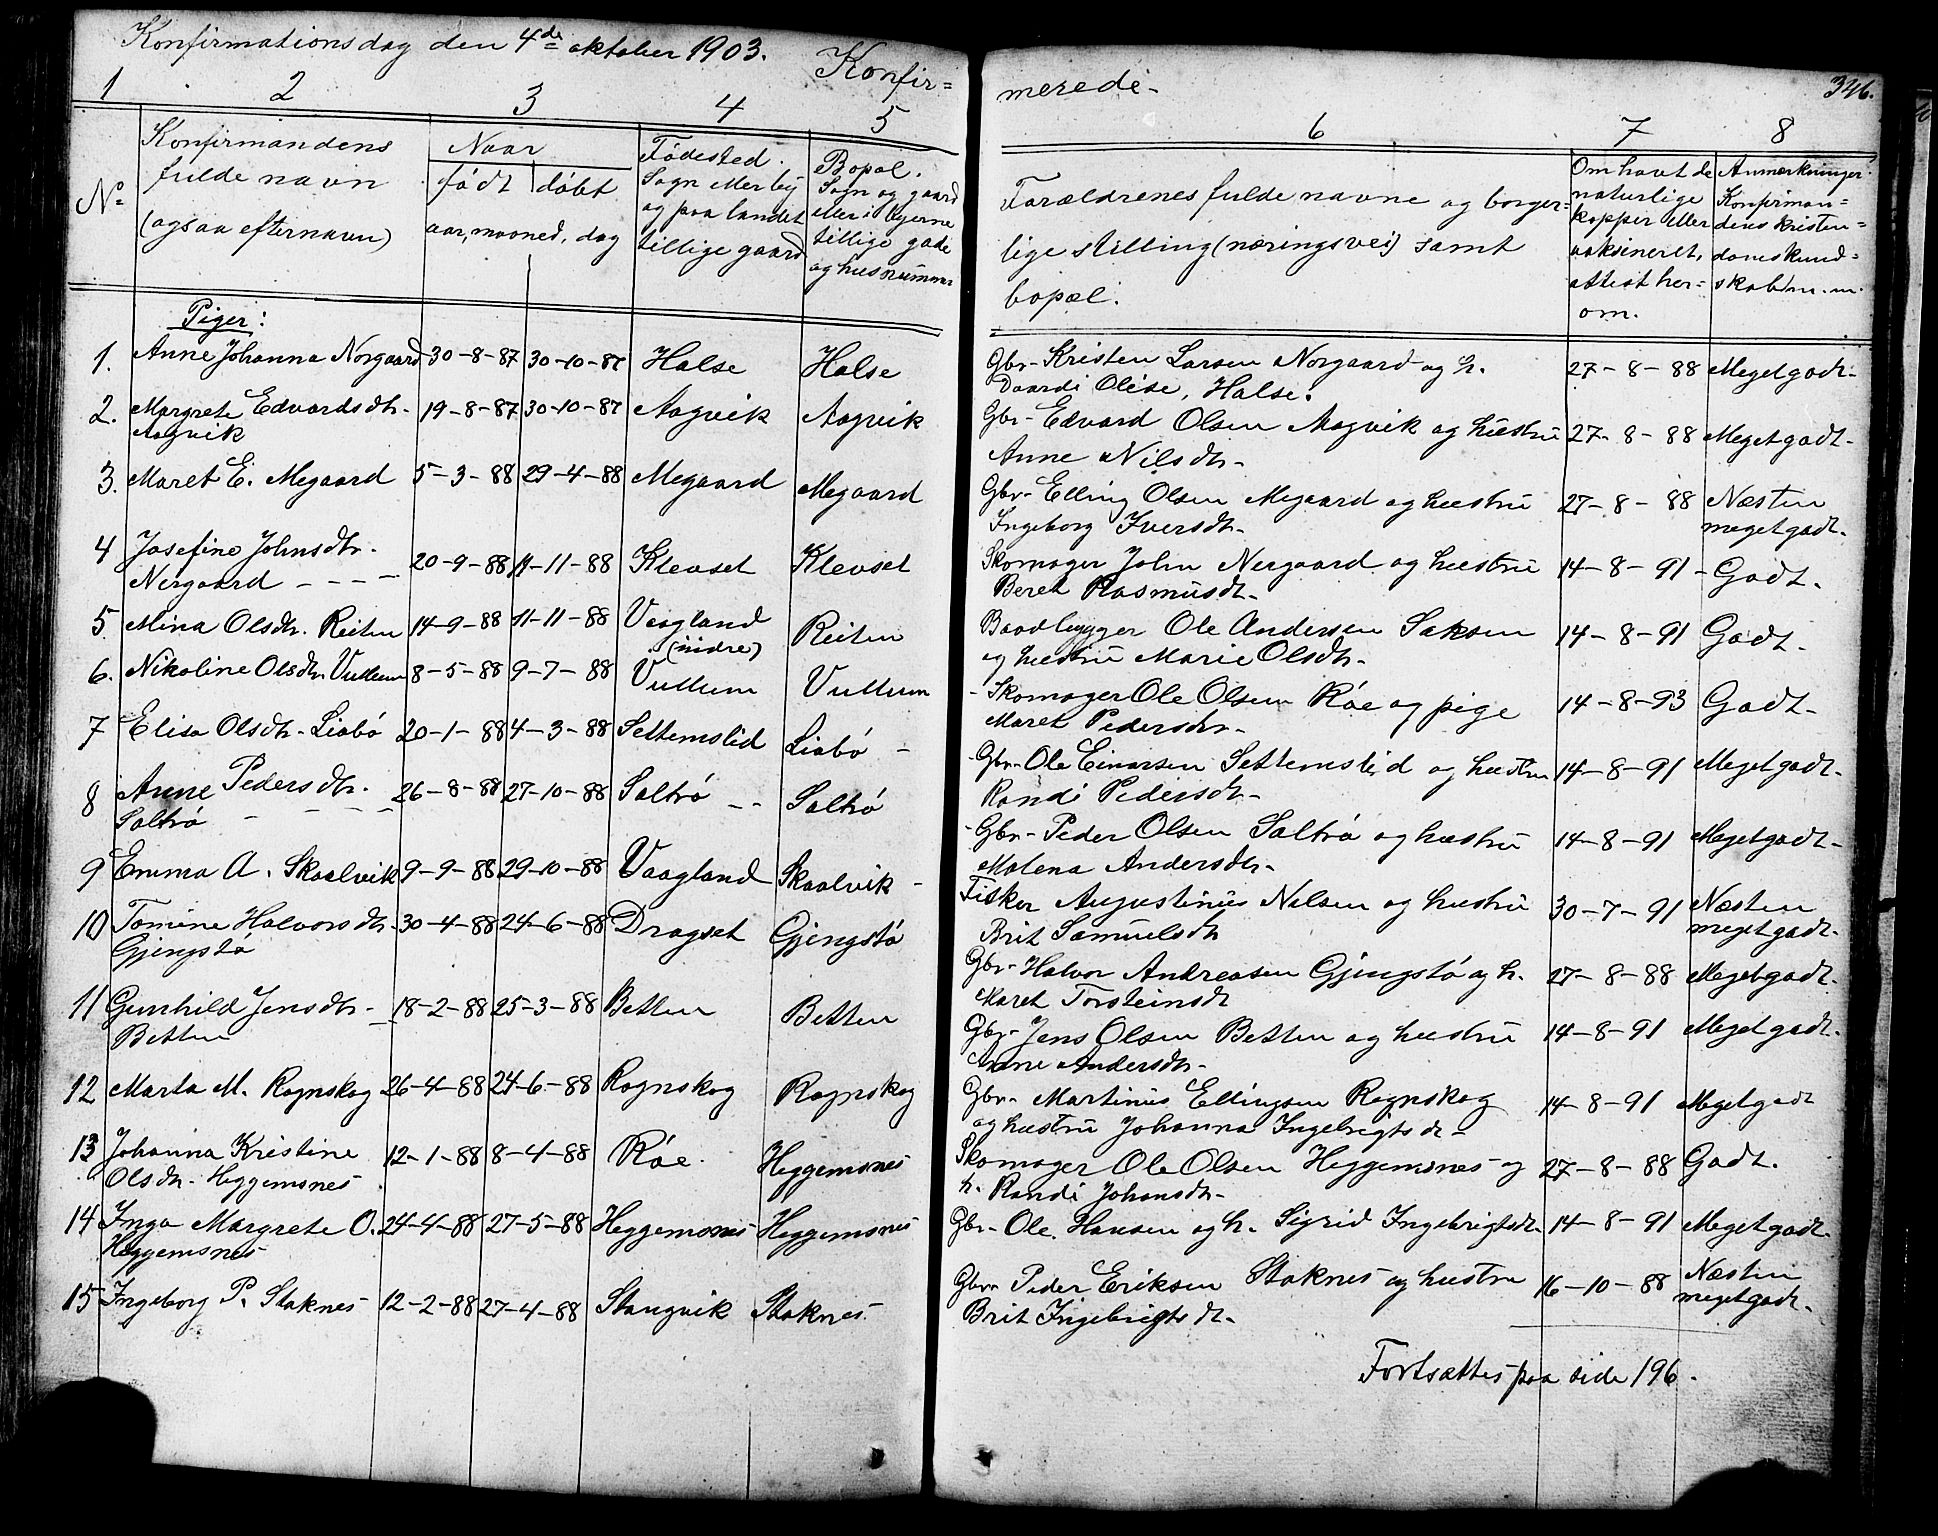 Konfirmationsdag den 4de oktober 1903.
Konfir=
1 2 3 4 5
No
Konfirmandens
fulde navn
(ogsaa efternavn)
Naar
født døbt
aar, maaned, dag
Fødested.
Sogn eller by
og paa landet
tillige gaard
Bopæl.
Sogn og gaard
eller i byerne
tillige gade
og husnummer
Piger:
1. Anne Johanna Norgaard 30-8-87 30-10-87 Halse Halse
2. Margrete Edvardsdtr. 19-8-87 30-10-87 Aagvik Aagvik
Aagvik
3. Maret E. Megaard 5-3-88 29-4-88 Megaard Megaard
4 Josefine Johnsdtr. 20-9-88 11-11-88 Klevset Klevset
Nergaard
5 Mina Olsdtr. Reiten 14-9-88 11-11-88 Vaagland Reiten
(indre)
6. Nikoline Olsdtr. Vullum 8-5-88 9-7-88 Vullum Vullum
7 Elisa Olsdtr. Liabø 20-1-88 4-3-88 Settemslid Liabø
8 Anne Pedersdtr. 26-8-88 27-10-88 Saltrø Saltrø
Saltrø
9 Emma A. Skaalvik 9-9-88 29-10-88 Vaagland Skaalvik
10 Tomine Halvorsdtr. 30-4-88 24-6-88 Drogset Gjengstø
Gjengstø
11 Gunhild Jensdtr. 18-2-88 25-3-88 Betten Betten
Betten
12 Marta M. Rognskog 26-4-88 24-6-88 Rognskog Rognskog
13 Johanna Kristine 12-1-88 8-4-88 Røe. Heggemsnes
Olsdtr. Heggemsnes
14 Inga Margrete O. 24-4-88 27-5-88 Heggemsnes Heggemsnes
Heggemsnes
15 Ingeborg P. Stoknes 12-2-88 27-4-88 Stangvik Stoknes.
merede.
346.
6 7 8
Forældrenes fulde navne og borger=
lige stilling (næringsvei) samt
bopæl.
Om havt de
naturlige
kopper eller
vaksineret,
attest her=
om.
Anmerkninger
Konfirman=
dens kristen=
domskund=
skab m. m.
Gbr. Kristen Larsen Norgaard og h. 27-8-88 Meget godt.
Daardi Olise, Halse.
Gbr. Edvard Olsen Aagvik og hustru 27-8-88 Meget godt.
Anne Nilsdtr.
Gbr. Elling Olsen Megaard og hustru 27-8-88 Næsten
Ingeborg Iversdtr. meget godt.
Skomager John Nergaard og hustru 14-8-91 Godt.
Beret Rasmusdtr.
Baadbygger Ole Andersen Saksen 14-8-91 Godt.
og hustru Marie Olsdtr.
Skomager Ole Olsen Røe og pige 14-8-93 Godt.
Maret Pedersdtr.
Gbr. Ole Einarsen Settemslid og hustru 14-8-91 Meget godt.
Randi Pedersdtr.
Gbr. Peder Olsen Saltrø og hustru 14-8-91 Meget godt.
Malena Andersdtr.
Fisker Augustinus Nilsen og hustru 30-7-91 Næsten
Brit Samuelsdtr meget godt.
Gbr. Halvor Andreasen Gjengstø og h. 27-8-88 Meget godt.
Maret Torsteinsdt
Gbr. Jens Olsen Betten og hustru 14-8-91 Meget godt.
Anne Andersdtr.
Gbr. Martinus Ellingsen Rognskog 14-8-91 Meget godt
og hustru Johanna Ingebrigtsdt.
Skomager Ole Olsen Heggemsnes og 27-8-88 Godt.
h. Randi Johansdtr.
Gbr. Ole Hansen og h. Sigrid Ingebrigtsdt. 14-8-91 Meget godt.
Gbr. Peder Eriksen Stoknes og hustru 16-10-88 Næsten
Brit Ingebrigtsdt. meget godt.
Fortsættes paa side 196.